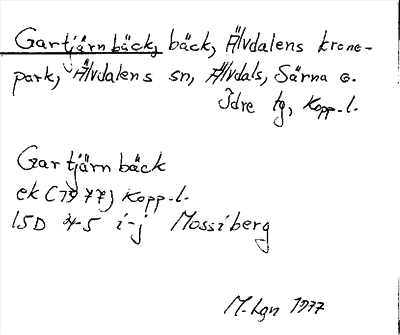 Gartjärnbäck, bäck, Älvdalens krono-
park, Älvdalens sn, Älvdals, Särna o.
Idre tg, Kopp. l.
Gartjärnbäck
ek (1977) Kopp. l.
15D 4-5 i-j Mossiberg
M. Lgn 1977